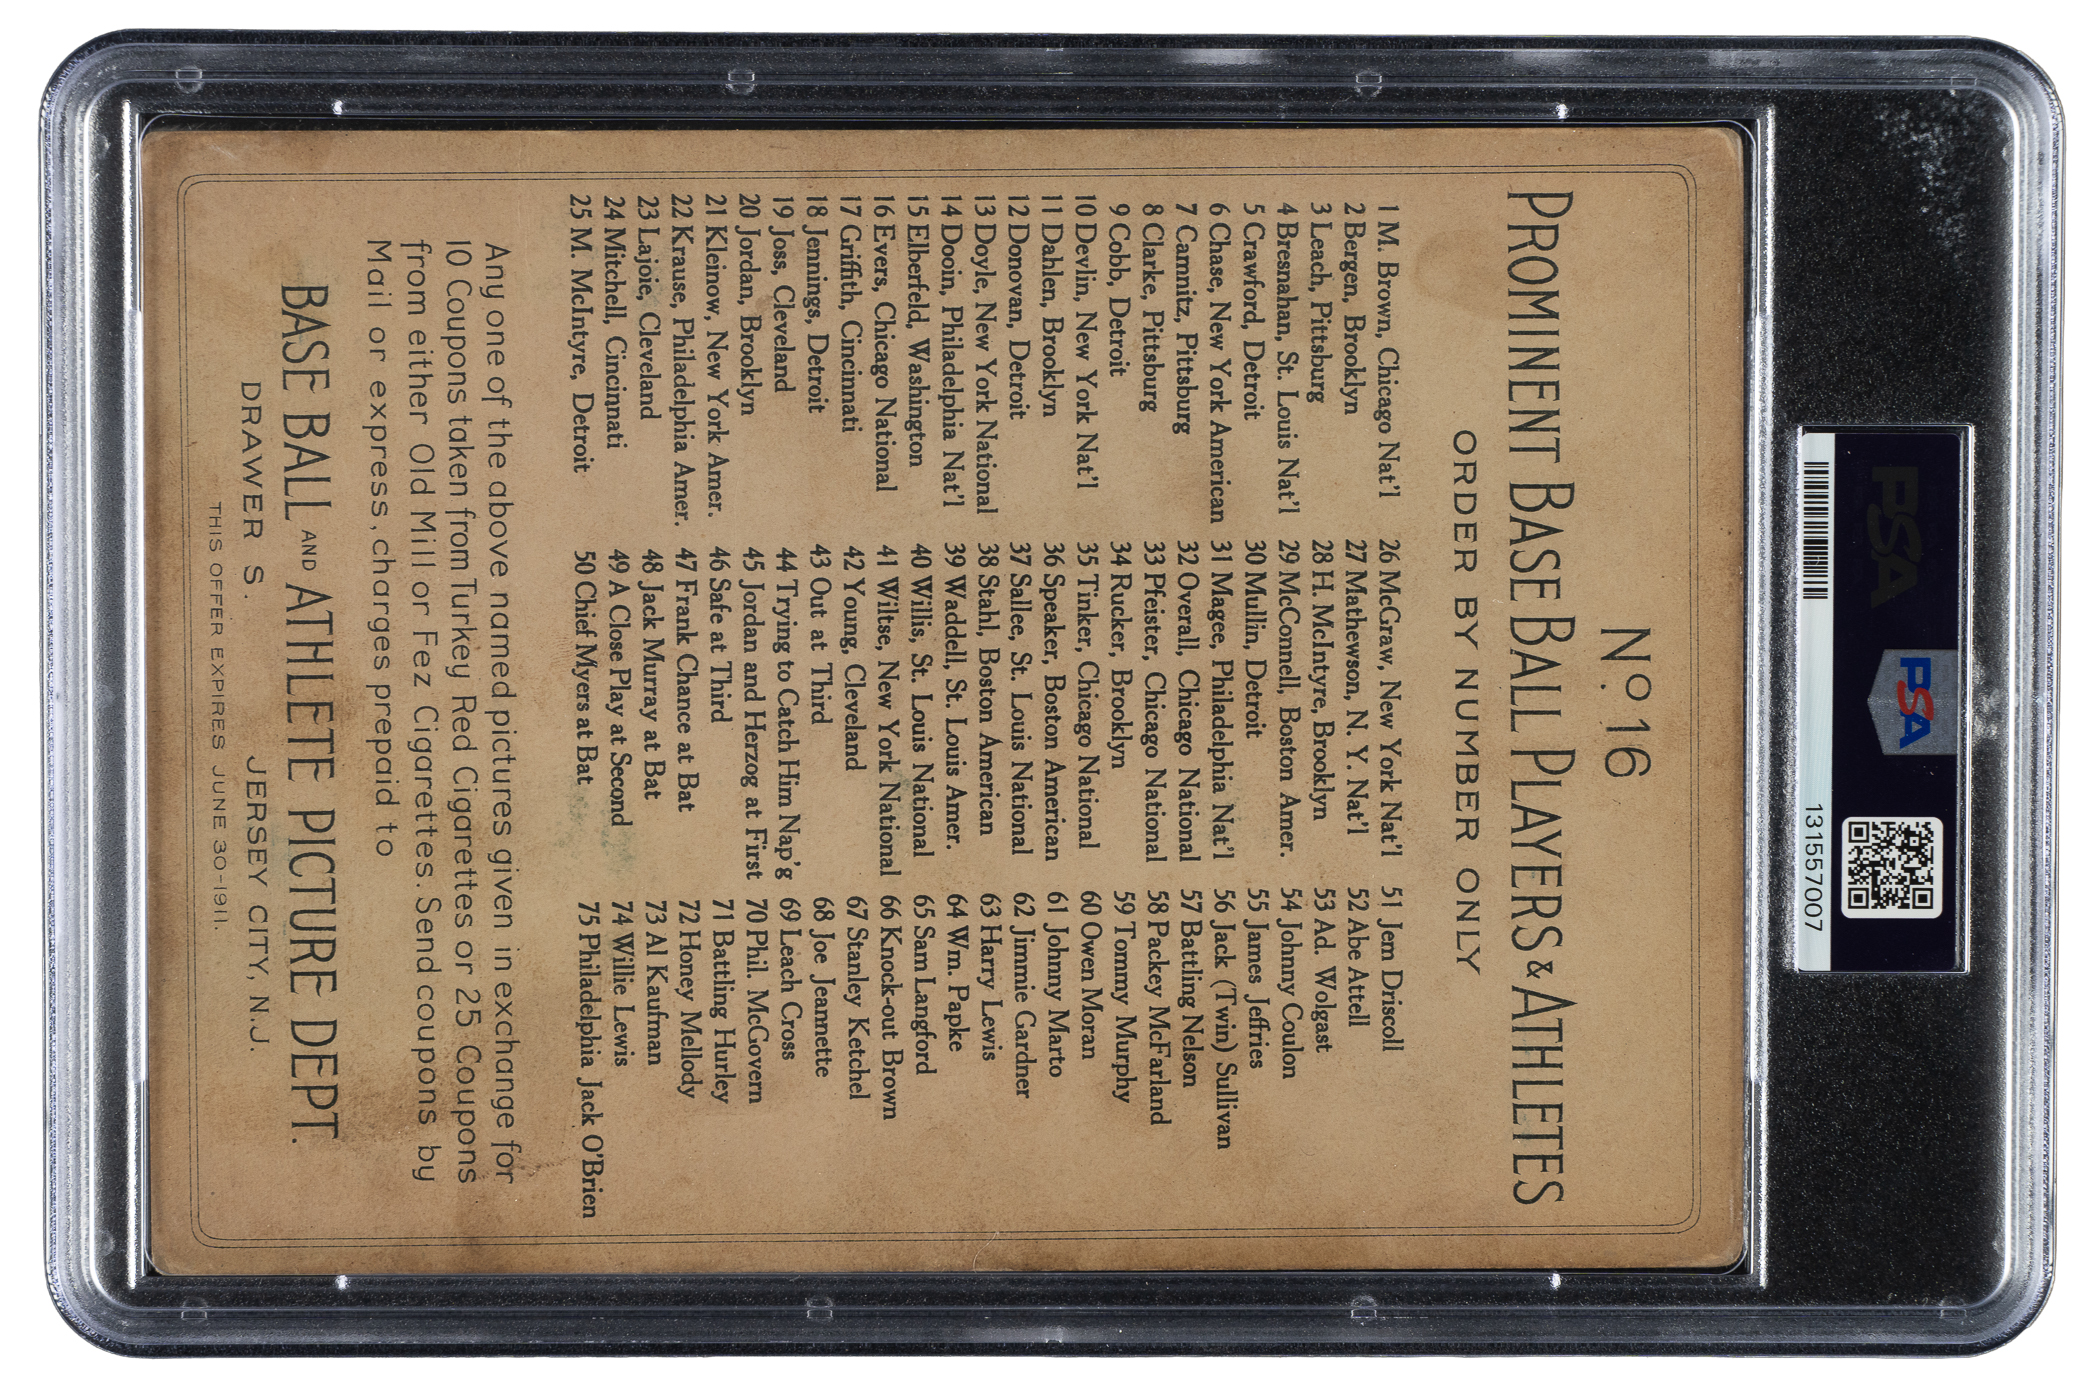 PSA
PSA
131557007
No. 16
PROMINENT BASE BALL PLAYERS & ATHLETES
ORDER BY NUMBER ONLY
1 M. Brown, Chicago Nat'l
2 Bergen, Brooklyn
3 Leach, Pittsburg
4 Bresnahan, St. Louis Nat'l
5 Crawford, Detroit
6 Chase, New York American
7 Camnitz, Pittsburg
8 Clarke, Pittsburg
9 Cobb, Detroit
10 Devlin, New York Nat'l
11 Dahlen, Brooklyn
12 Donovan, Detroit
13 Doyle, New York National
14 Dooin, Philadelphia Nat'l
15 Elberfeld, Washington
16 Evers, Chicago National
17 Griffith, Cincinnati
18 Jennings, Detroit
19 Joss, Cleveland
20 Jordan, Brooklyn
21 Kleinow, New York Amer.
22 Krause, Philadelphia Amer.
23 Lajoie, Cleveland
24 Mitchell, Cincinnati
25 M. McIntyre, Detroit
26 McGraw, New York Nat'l
27 Mathewson, N. Y. Nat'l
28 H. McIntyre, Brooklyn
29 McConnell, Boston Amer.
30 Mullin, Detroit
31 Magee, Philadelphia Nat'l
32 Overall, Chicago National
33 Pfeister, Chicago National
34 Rucker, Brooklyn
35 Tinker, Chicago National
36 Speaker, Boston American
37 Sallee, St. Louis National
38 Stahl, Boston American
39 Waddell, St. Louis Amer.
40 Willis, St. Louis National
41 Wiltse, New York National
42 Young, Cleveland
43 Out at Third
44 Trying to Catch Him Nap'g
45 Jordan and Herzog at First
46 Safe at Third
47 Frank Chance at Bat
48 Jack Murray at Bat
49 A Close Play at Second
50 Chief Myers at Bat
51 Jem Driscoll
52 Abe Attell
53 Ad. Wolgast
54 Johnny Coulon
55 James Jeffries
56 Jack (Twin) Sullivan
57 Battling Nelson
58 Packey McFarland
59 Tommy Murphy
60 Owen Moran
61 Johnny Marto
62 Jimmie Gardner
63 Harry Lewis
64 Wm. Papke
65 Sam Langford
66 Knock-out Brown
67 Stanley Ketchel
68 Joe Jeannette
69 Leach Cross
70 Phil. McGovern
71 Battling Hurley
72 Honey Mellody
73 Al Kaufman
74 Willie Lewis
75 Philadelphia Jack O'Brien
Any one of the above named pictures given in exchange for
10 Coupons taken from Turkey Red Cigarettes or 25 Coupons
from either Old Mill or Fez Cigarettes. Send coupons by
Mail or express, charges prepaid to
BASE BALL AND ATHLETE PICTURE DEPT.
DRAWER S. JERSEY CITY, N.J.
THIS OFFER EXPIRES JUNE 30-1911.